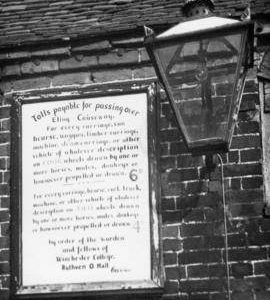 Tolls payable for passing over
Eling Causeway.
For every carriage, van
hearse, waggon, timber carriage,
machine, steam carriage, or other
vehicle of whatever description
on FOUR wheels drawn by one or
more horses, mules, donkeys or
howsoever propelled or drawn. 6ᴰ
For every carriage, hearse, cart, truck,
machine, or other vehicle of whatever
description on wheels drawn
by one or more horses, mules, donkeys
or howsoever propelled or drawn 4
by order of the Warden
and fellows of
Winchester College,
Ruthven O. Hall